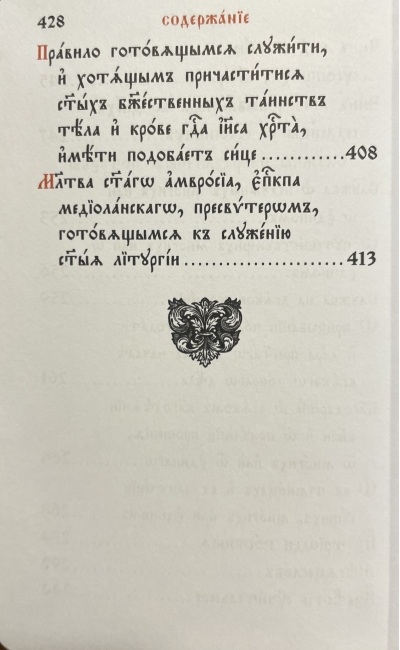 428 СОДЕРЖА́НЇЕ
Пра́вило гото́вѧщымсѧ слꙋжи́ти,
и҆ хотѧ́щымъ причасти́тисѧ
ст҃ы́хъ бж҃е́ственныхъ та́инствъ
тѣ́ла и҆ кро́ве гдⷭ҇а і҆и҃са хрⷭ҇та̀,
и҆мѣ́ти подоба́етъ си́це ............408
Мл҃тва ст҃а́гѡ а҆мвро́сїа, є҆пⷭ҇кпа
медїѡла́нскагѡ, пресвѵ́терѡмъ,
гото́вѧщымсѧ къ слꙋже́нїю
ст҃ы́ѧ лїтꙋргі́и ......................413